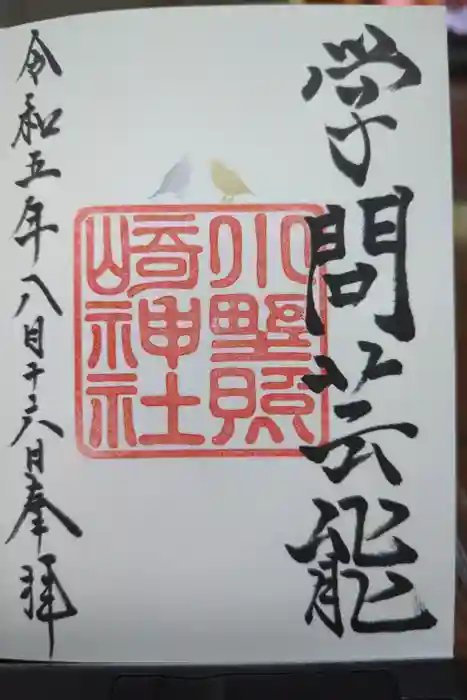 學問芸能
小野照
崎神社
令和五年八月十六日奉拝